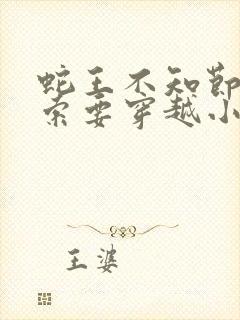 蛇王不知节
索要穿越小
王婆